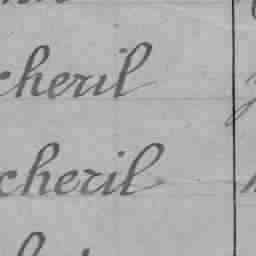 cheril
cheril